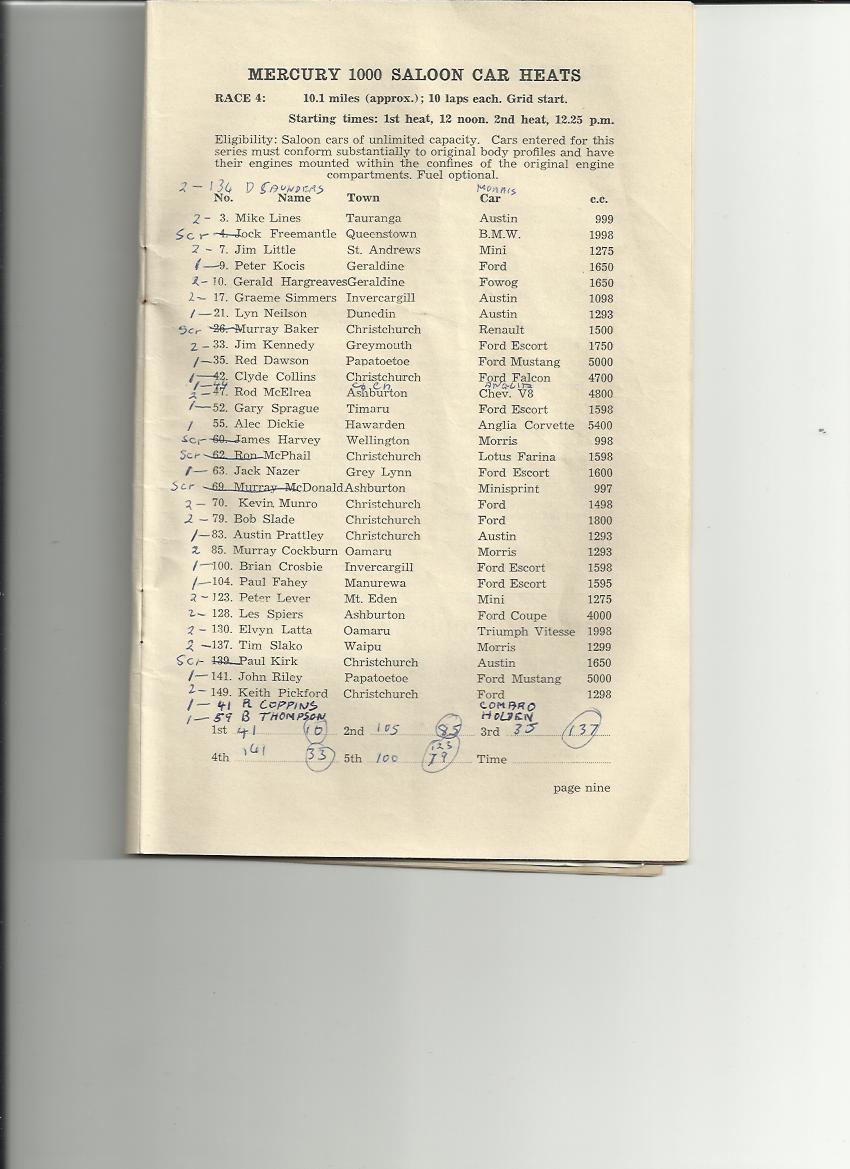 MERCURY 1000 SALOON CAR HEATS
RACE 4: 10.1 miles (approx.); 10 laps each. Grid start.
Starting times: 1st heat, 12 noon. 2nd heat, 12.25 p.m.
Eligibility: Saloon cars of unlimited capacity. Cars entered for this
series must conform substantially to original body profiles and have
their engines mounted within the confines of the original engine
compartments. Fuel optional.
2 - 134 D SAUNDERS MORRIS
No. Name Town Car c.c.
2 - 3. Mike Lines Tauranga Austin 999
Scr 4. Jock Freemantle Queenstown B.M.W. 1998
2 - 7. Jim Little St. Andrews Mini 1275
1 - 9. Peter Kocis Geraldine Ford 1650
2 - 10. Gerald Hargreaves Geraldine Fowog 1650
2 - 17. Graeme Simmers Invercargill Austin 1098
1 - 21. Lyn Neilson Dunedin Austin 1293
Scr 26. Murray Baker Christchurch Renault 1500
2 - 33. Jim Kennedy Greymouth Ford Escort 1750
1 - 35. Red Dawson Papatoetoe Ford Mustang 5000
1 - 42. Clyde Collins Christchurch Ford Falcon 4700
1 - 44 ANGLIA
2 - 47. Rod McElrea Ashburton Chev. V8 4800
1 - 52. Gary Sprague Timaru Ford Escort 1598
1 55. Alec Dickie Hawarden Anglia Corvette 5400
Scr 60. James Harvey Wellington Morris 998
Scr 62. Ron McPhail Christchurch Lotus Farina 1598
1 - 63. Jack Nazer Grey Lynn Ford Escort 1600
Scr 69. Murray McDonald Ashburton Minisprint 997
2 - 70. Kevin Munro Christchurch Ford 1498
2 - 79. Bob Slade Christchurch Ford 1800
1 - 83. Austin Prattley Christchurch Austin 1293
2 85. Murray Cockburn Oamaru Morris 1293
1 - 100. Brian Crosbie Invercargill Ford Escort 1598
1 - 104. Paul Fahey Manurewa Ford Escort 1595
2 - 123. Peter Lever Mt. Eden Mini 1275
2 - 128. Les Spiers Ashburton Ford Coupe 4000
2 - 130. Elvyn Latta Oamaru Triumph Vitesse 1998
2 - 137. Tim Slako Waipu Morris 1299
Scr 139. Paul Kirk Christchurch Austin 1650
1 - 141. John Riley Papatoetoe Ford Mustang 5000
2 - 149. Keith Pickford Christchurch Ford 1298
1 - 41 R COPPINS COMARO
1 - 59 B THOMPSON HOLDEN
1st 41 10 2nd 105 85 3rd 35 137
4th 141 33 5th 100 123 79 Time
page nine